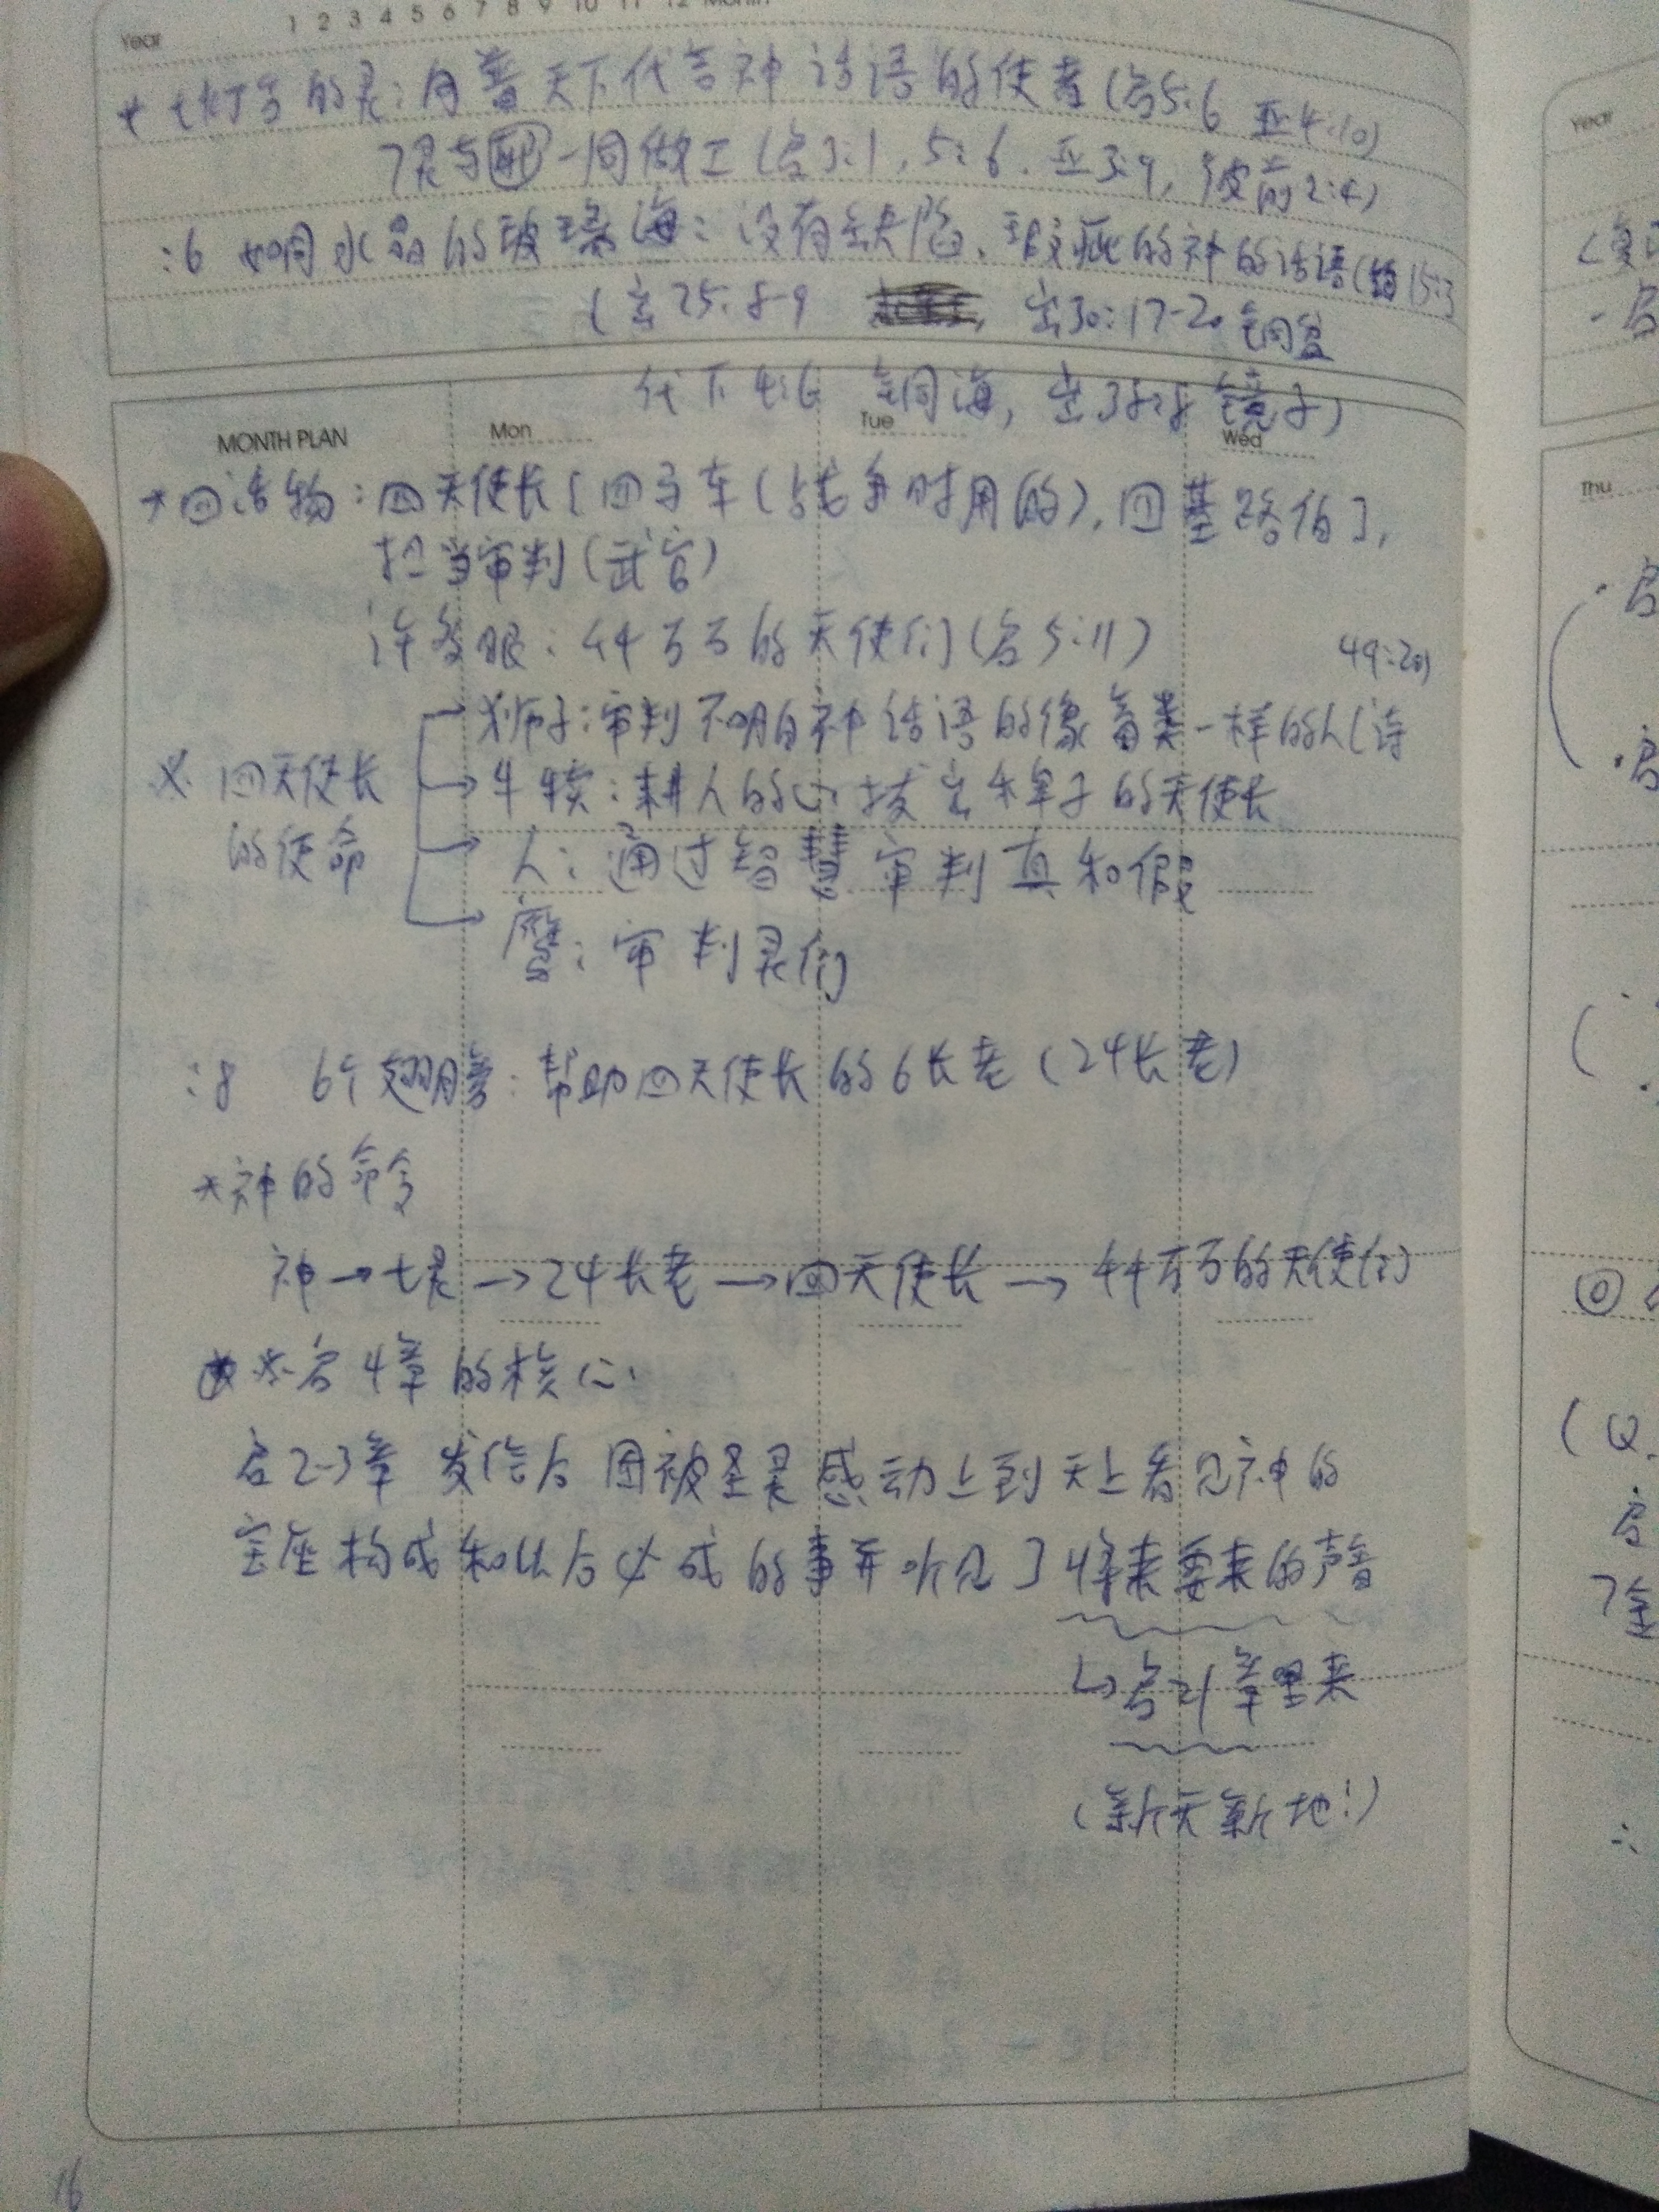 Year 1 2 3 4 5 6 7 8 9 10 11 12 Month
* 七灯台的灵:向普天下代言神话语的使者(启5:6 亚4:10)
7灵与 一同做工(启3:1, 5:6. 亚3:9, 彼前2:4)
:6 如同水晶的玻璃海:没有缺陷、瑕疵的神的话语(启15:3
(出25:8-9 出30:17-20 铜盆
代下4:6 铜海, 出38:8 镜子)
MONTH PLAN Mon Tue Wed
*四活物:四天使长[四马车(战争时用的),四基路伯],
担当审判(武官)
许多眼:千千万万的天使们(启5:11)
49:20)
狮子:审判不明白神话语的像畜类一样的人(诗
※ 四天使长
牛犊:耕人的心 拔出稗子的天使长
的使命
人:通过智慧审判真和假
鹰:审判灵们
:8 6个翅膀:帮助四天使长的6长老(24长老)
*神的命令
神→七灵→24长老→四天使长→千千万万的天使们
※启4章的核心
启2-3章 发信后 因被圣灵感动上到天上看见神的
宝座构成和以后必成的事并听见了将来要来的声音
↳启21章里来
(新天新地!)
16
Year
Thu